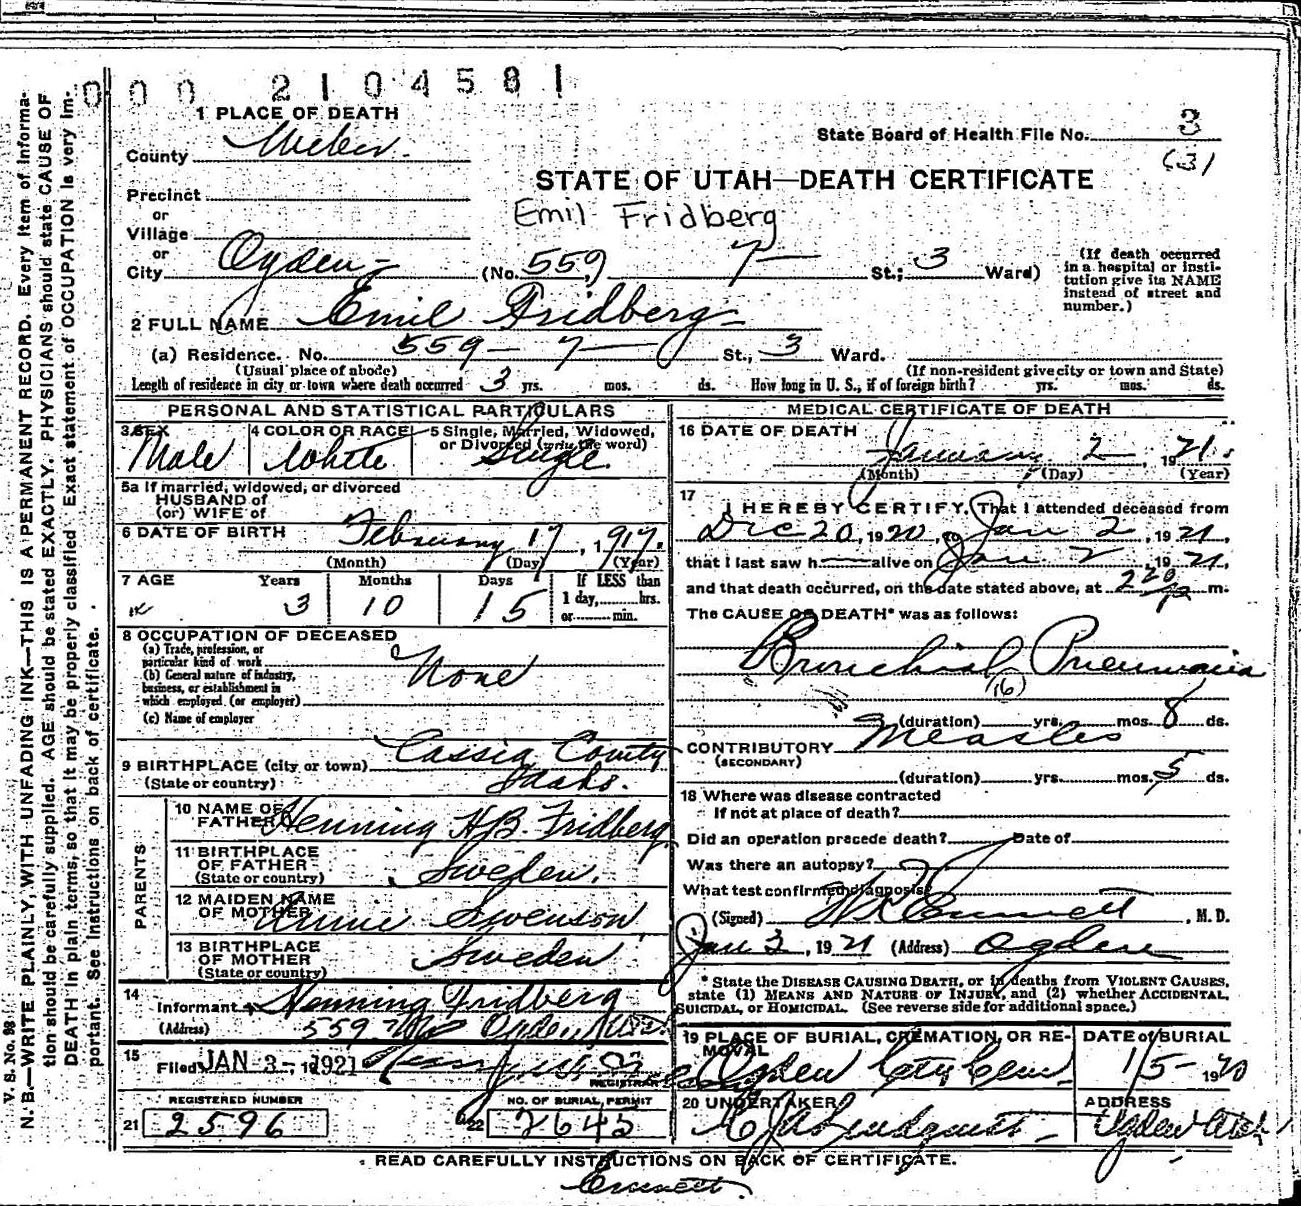 0 0 0 2 1 0 4 5 8 1
1 PLACE OF DEATH
County Weber.
State Board of Health File No. 3
(3)
STATE OF UTAH—DEATH CERTIFICATE
Precinct
or
Village
Emil Fridberg
or
City Ogden (No. 559, 7— St.; 3 Ward)
(If death occurred in a hospital or insti-
tution give its NAME
instead of street and
number.)
2 FULL NAME Emil Fridberg
(a) Residence. No. 559 — 7 — St., 3 Ward.
(Usual place of abode) (If non-resident give city or town and State)
Length of residence in city or town where death occurred 3 yrs. mos. ds. How long in U. S., if of foreign birth? yrs. mos. ds.
PERSONAL AND STATISTICAL PARTICULARS
3 SEX Male
4 COLOR OR RACE White
5 Single, Married, Widowed,
or Divorced (write the word)
Single.
5a If married, widowed, or divorced
HUSBAND of
(or) WIFE of
6 DATE OF BIRTH February 17, 1917.
(Month) (Day) (Year)
7 AGE Years Months Days If LESS than
3 10 15 1 day, hrs.
or min.
8 OCCUPATION OF DECEASED
(a) Trade, profession, or
particular kind of work
None
(b) General nature of industry,
business, or establishment in
which employed (or employer)
(c) Name of employer
9 BIRTHPLACE (city or town) Cassia County
(State or country) Idaho.
PARENTS
10 NAME OF
FATHER Henning H.B. Fridberg
11 BIRTHPLACE
OF FATHER Sweden.
(State or country)
12 MAIDEN NAME
OF MOTHER Annie Swenson
13 BIRTHPLACE
OF MOTHER Sweden
(State or country)
14
Informant Henning Fridberg
(Address) 559 7th Ogden Utah
15
Filed JAN 3-, 1921
REGISTRAR
REGISTERED NUMBER
21 2596
NO. OF BURIAL PERMIT
22 2645
MEDICAL CERTIFICATE OF DEATH
16 DATE OF DEATH
January 2, 1921.
(Month) (Day) (Year)
17
I HEREBY CERTIFY, That I attended deceased from
Dec 20, 1920, to Jan 2, 1921,
that I last saw h—alive on Jan 2, 1921,
and that death occurred, on the date stated above, at 2 20 P m.
The CAUSE OF DEATH* was as follows:
Bronchial Pneumonia
(16)
(duration) yrs. mos. 8 ds.
CONTRIBUTORY Measles
(SECONDARY)
(duration) yrs. mos. 5 ds.
18 Where was disease contracted
If not at place of death?
Did an operation precede death? Date of
Was there an autopsy?
What test confirmed diagnosis?
(Signed) Emmett, M. D.
Jan 3, 1921 (Address) Ogden
* State the DISEASE CAUSING DEATH, or in deaths from VIOLENT CAUSES,
state (1) MEANS AND NATURE OF INJURY, and (2) whether ACCIDENTAL,
SUICIDAL, or HOMICIDAL. (See reverse side for additional space.)
19 PLACE OF BURIAL, CREMATION, OR RE-
MOVAL
Ogden City Cem.
DATE of BURIAL
1/5- 1920
20 UNDERTAKER
Lindquist
ADDRESS
Ogden Utah
READ CAREFULLY INSTRUCTIONS ON BACK OF CERTIFICATE.
Emmett.
V. S. No. 98
N. B.—WRITE PLAINLY, WITH UNFADING INK—THIS IS A PERMANENT RECORD. Every item of informa-
tion should be carefully supplied. AGE should be stated EXACTLY. PHYSICIANS should state CAUSE OF
DEATH in plain terms, so that it may be properly classified. Exact statement of OCCUPATION is very im-
portant. See instructions on back of certificate.